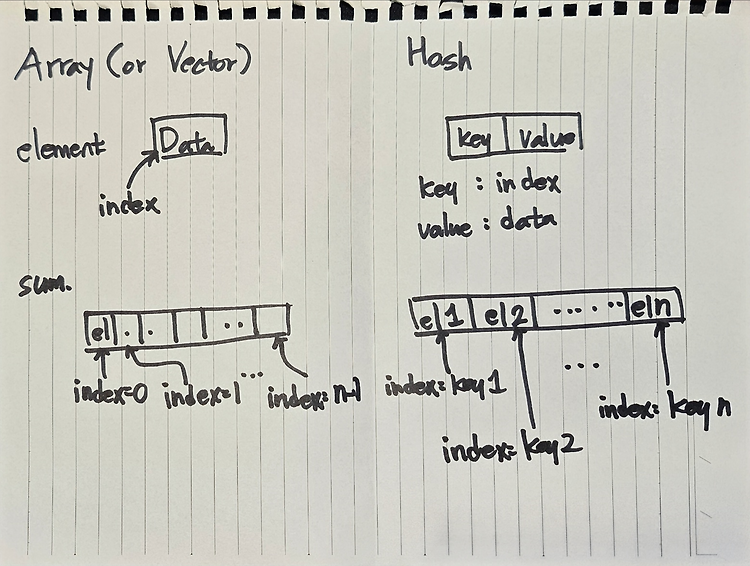 Array (or Vector)
element
Data
index
sum.
el . . ..
index=0 index=1 ... index=n-1
Hash
key value
key : index
value : data
el1 el2 ..... eln
index=key1 ... index=key n
index=key2